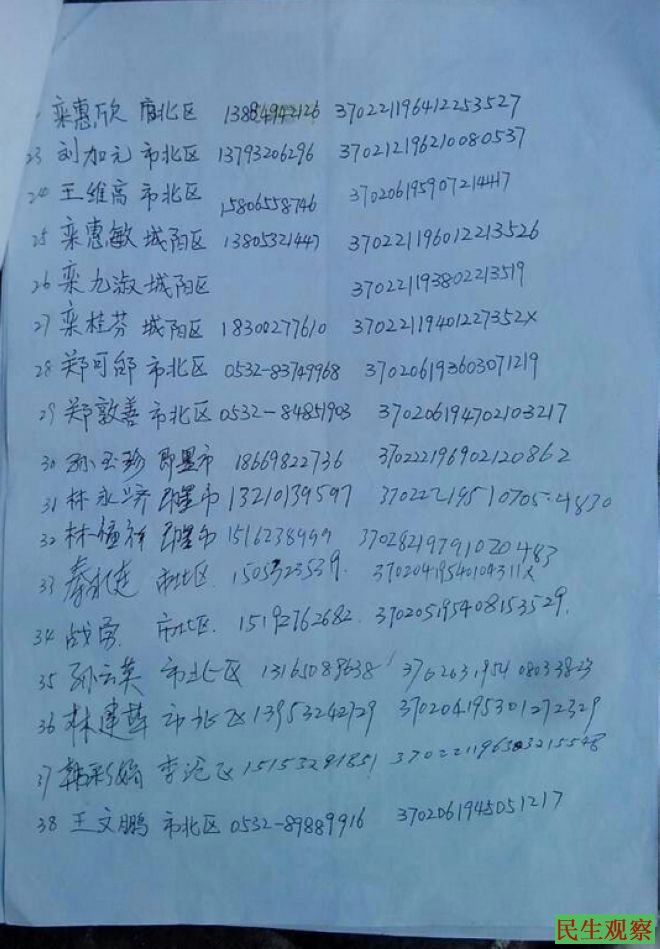 栾惠欣 市北区 13884942126 370221196412253527
23 刘加元 市北区 13793206296 370212196210080537
24 王维高 市北区 15806558746 370206195907214417
25 栾惠敏 城阳区 13805321447 370221196012213526
26 栾九淑 城阳区 370221193802213519
27 栾桂芬 城阳区 18300277610 37022119401227352X
28 郑可 市北区 0532-83749968 370206193603071219
29 郑敦善 市北区 0532-84851903 370206194702103217
30 孙玉珍 即墨市 18669822736 370222196902120862
31 林永 即墨市 13210139597 370222195107054830
32 林 即墨市 1516238999 37028219791020483
33 秦 市北区 37020419540104311X
34 战 市北区 15192762682 370205195408153529
35 孙云英 市北区 13165089638
36 林建华 市北区 13953242729 370204195301272329
37 韩彩 李沧区 15153291851
38 王文鹏 市北区 0532-89889916 3702061945051217
民生观察